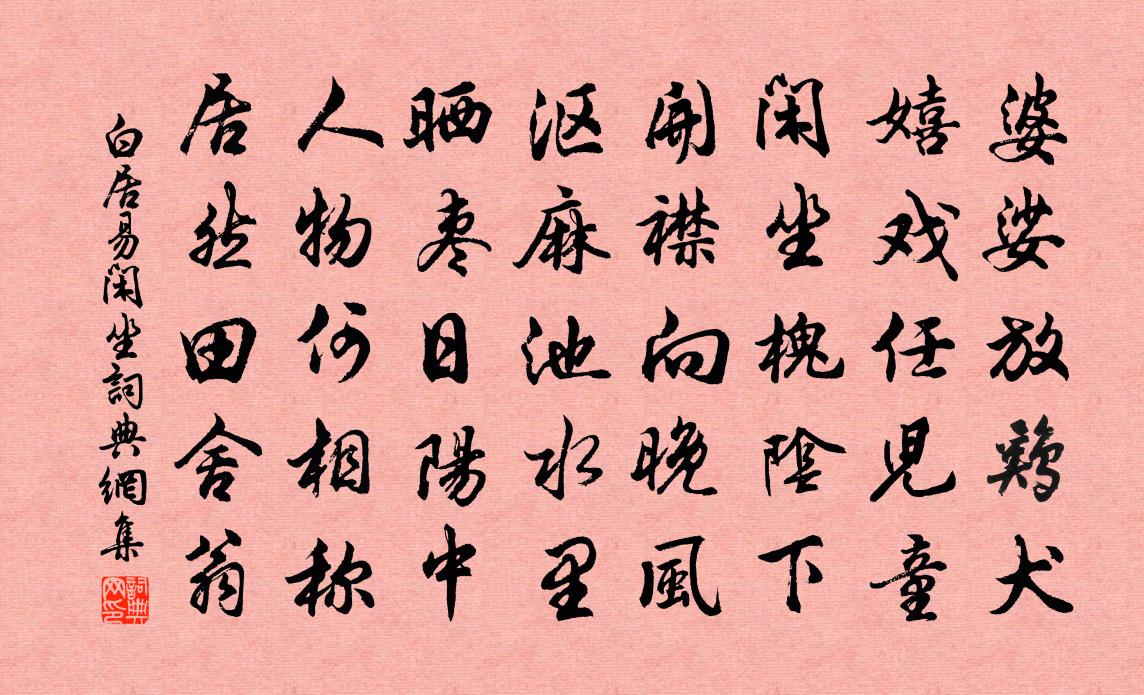 婆娑放鷄犬
嬉戏任児童
闲坐槐陰下
開襟向晚風
沤麻池水里
晒枣日陽中
人物何相称
居然田舍翁
白居易闲坐詞典網集
詞典网印